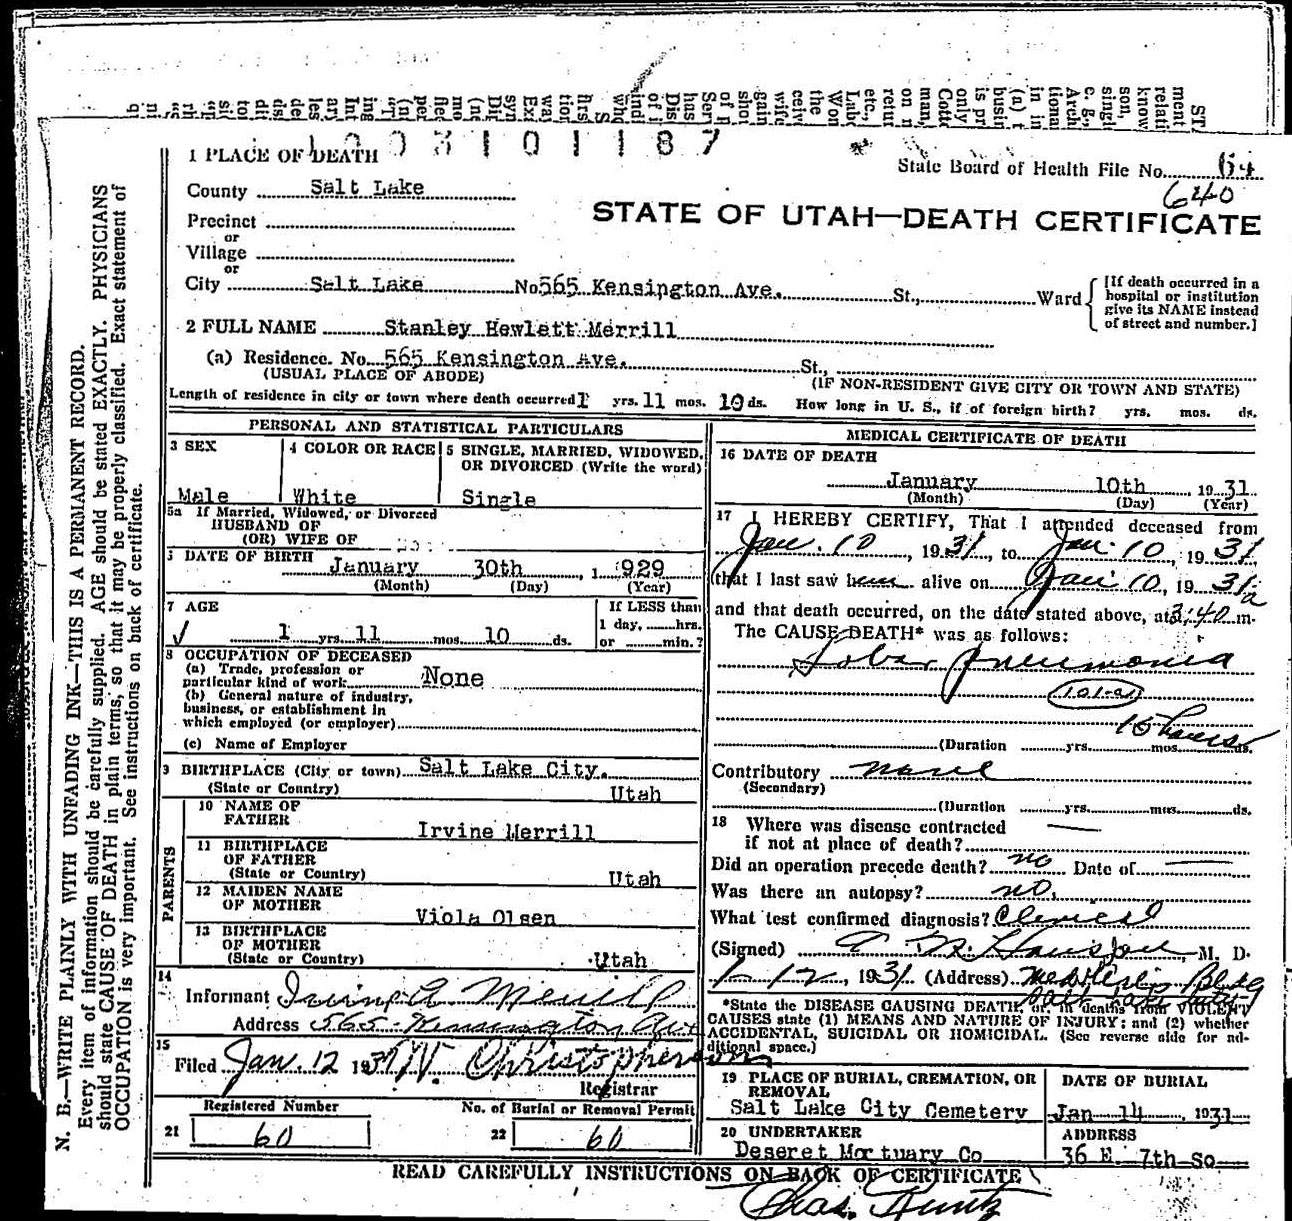 1003101187
1 PLACE OF DEATH
State Board of Health File No. 64
640
County Salt Lake
STATE OF UTAH—DEATH CERTIFICATE
Precinct
or
Village
or
City Salt Lake No 565 Kensington Ave. St., Ward
[If death occurred in a
hospital or institution
give its NAME instead
of street and number.]
2 FULL NAME Stanley Hewlett Merrill
(a) Residence. No. 565 Kensington Ave. St.,
(USUAL PLACE OF ABODE) (IF NON-RESIDENT GIVE CITY OR TOWN AND STATE)
Length of residence in city or town where death occurred 1 yrs. 11 mos. 10 ds. How long in U. S., if of foreign birth? yrs. mos. ds.
PERSONAL AND STATISTICAL PARTICULARS
3 SEX
Male
4 COLOR OR RACE
White
5 SINGLE, MARRIED, WIDOWED,
OR DIVORCED (Write the word)
Single
5a If Married, Widowed, or Divorced
HUSBAND OF
(OR) WIFE OF
DATE OF BIRTH January 30th, 1929
(Month) (Day) (Year)
7 AGE
1 yrs. 11 mos. 10 ds.
If LESS than
1 day, hrs.
or min.?
8 OCCUPATION OF DECEASED
(a) Trade, profession or
particular kind of work None
(b) General nature of industry,
business, or establishment in
which employed (or employer)
(c) Name of Employer
9 BIRTHPLACE (City or town) Salt Lake City.
(State or Country) Utah
PARENTS
10 NAME OF
FATHER
Irvine Merrill
11 BIRTHPLACE
OF FATHER
(State or Country) Utah
12 MAIDEN NAME
OF MOTHER
Viola Olsen
13 BIRTHPLACE
OF MOTHER
(State or Country) Utah
14
Informant Irvine A Merrill
Address 565 Kensington Ave
15
Filed Jan. 12 1931 W. Christopherson
Registrar
Registered Number
21 60
No. of Burial or Removal Permit
22 60
MEDICAL CERTIFICATE OF DEATH
16 DATE OF DEATH
January 10th, 1931
(Month) (Day) (Year)
17 I HEREBY CERTIFY, That I attended deceased from
Jan. 10, 1931, to Jan. 10, 1931
that I last saw him alive on Jan 10, 1931
and that death occurred, on the date stated above, at 3:40 a m.
The CAUSE DEATH* was as follows:
Lobar pneumonia
101-a
15 hours
(Duration yrs. mos. ds.
Contributory none
(Secondary)
(Duration yrs. mos. ds.
18 Where was disease contracted
if not at place of death?
Did an operation precede death? no Date of
Was there an autopsy? no.
What test confirmed diagnosis? Clinical
(Signed) M. D.
1-12, 1931 (Address) Bldg
Salt Lake City
*State the DISEASE CAUSING DEATH, or, in deaths from VIOLENT
CAUSES state (1) MEANS AND NATURE OF INJURY; and (2) whether
ACCIDENTAL, SUICIDAL OR HOMICIDAL. (See reverse side for ad-
ditional space.)
19 PLACE OF BURIAL, CREMATION, OR
REMOVAL
Salt Lake City Cemetery
DATE OF BURIAL
Jan 14, 1931
20 UNDERTAKER
Deseret Mortuary Co
ADDRESS
36 E. 7th So.
READ CAREFULLY INSTRUCTIONS ON BACK OF CERTIFICATE
Chas. Kuntz
N. B.—WRITE PLAINLY WITH UNFADING INK—THIS IS A PERMANENT RECORD.
Every item of information should be carefully supplied. AGE should be stated EXACTLY. PHYSICIANS
should state CAUSE OF DEATH in plain terms, so that it may be properly classified. Exact statement of
OCCUPATION is very important. See instructions on back of certificate.